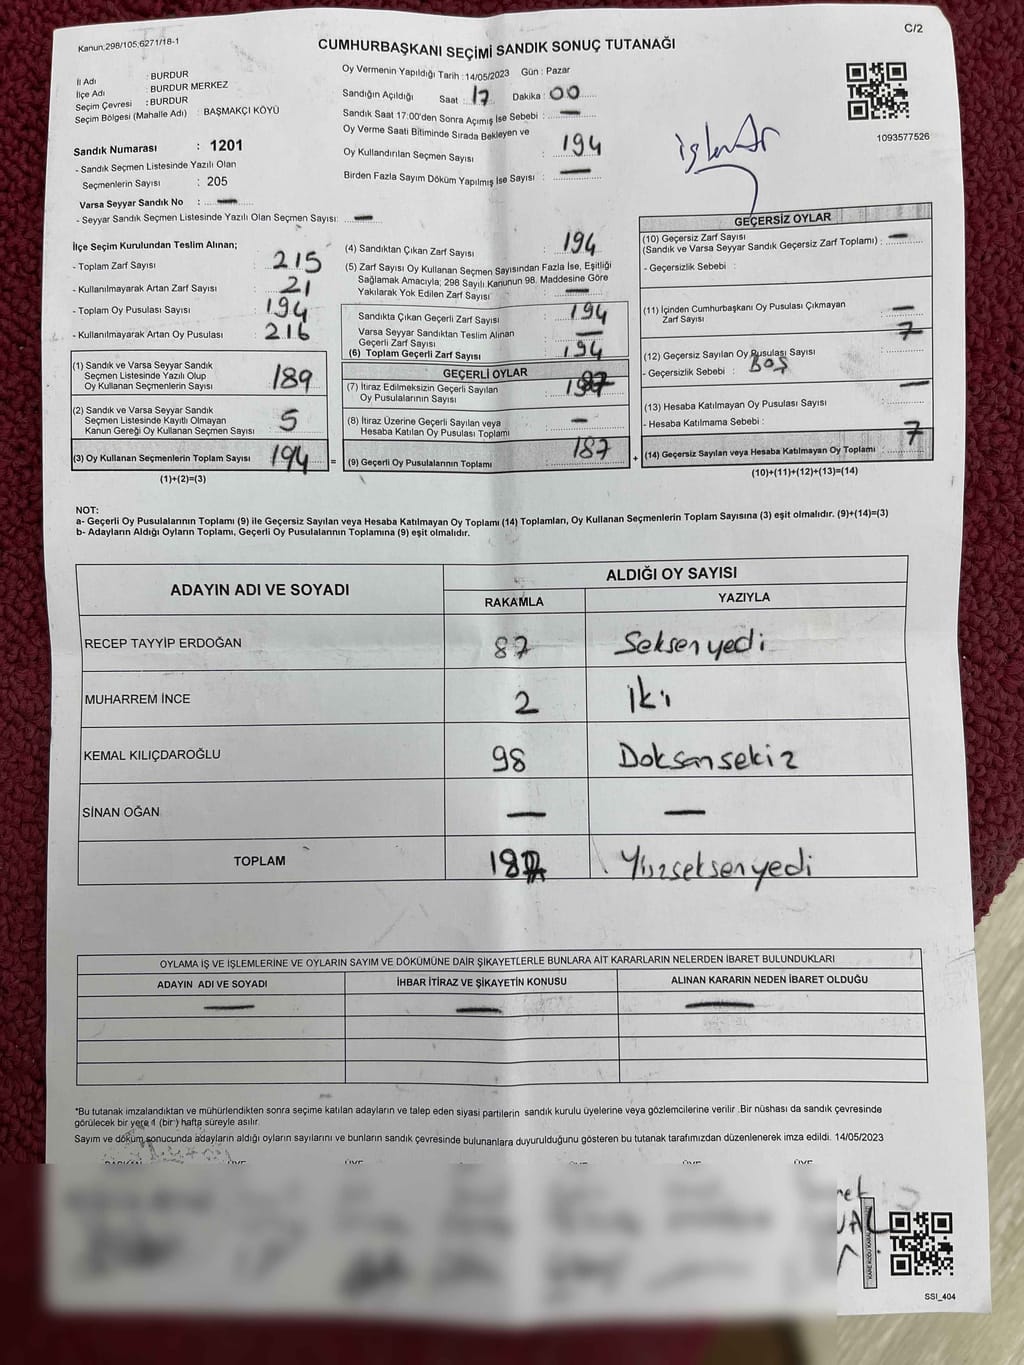 Kanun;298/105;6271/18-1
C/2
CUMHURBAŞKANI SEÇİMİ SANDIK SONUÇ TUTANAĞI
İl Adı : BURDUR
İlçe Adı : BURDUR MERKEZ
Seçim Çevresi : BURDUR
Seçim Bölgesi (Mahalle Adı) : BAŞMAKÇI KÖYÜ
Sandık Numarası : 1201
- Sandık Seçmen Listesinde Yazılı Olan
Seçmenlerin Sayısı : 205
Varsa Seyyar Sandık No : —
- Seyyar Sandık Seçmen Listesinde Yazılı Olan Seçmen Sayısı: —
Oy Vermenin Yapıldığı Tarih : 14/05/2023 Gün : Pazar
Sandığın Açıldığı Saat : 17 Dakika : 00
Sandık Saat 17:00'den Sonra Açımış İse Sebebi : —
Oy Verme Saati Bitiminde Sırada Bekleyen ve
Oy Kullandırılan Seçmen Sayısı : 194
Birden Fazla Sayım Döküm Yapılmış İse Sayısı : —
1093577526
İlçe Seçim Kurulundan Teslim Alınan;
- Toplam Zarf Sayısı : 215
- Kullanılmayarak Artan Zarf Sayısı : 21
- Toplam Oy Pusulası Sayısı : 194
- Kullanılmayarak Artan Oy Pusulası : 216
(1) Sandık ve Varsa Seyyar Sandık
Seçmen Listesinde Yazılı Olup
Oy Kullanan Seçmenlerin Sayısı 189
(2) Sandık ve Varsa Seyyar Sandık
Seçmen Listesinde Kayıtlı Olmayan
Kanun Gereği Oy Kullanan Seçmen Sayısı 5
(3) Oy Kullanan Seçmenlerin Toplam Sayısı 194 =
(1)+(2)=(3)
(4) Sandıktan Çıkan Zarf Sayısı : 194
(5) Zarf Sayısı Oy Kullanan Seçmen Sayısından Fazla İse, Eşitliği
Sağlamak Amacıyla; 298 Sayılı Kanunun 98. Maddesine Göre
Yakılarak Yok Edilen Zarf Sayısı : —
Sandıkta Çıkan Geçerli Zarf Sayısı : 194
Varsa Seyyar Sandıktan Teslim Alınan
Geçerli Zarf Sayısı : —
(6) Toplam Geçerli Zarf Sayısı : 194
GEÇERLİ OYLAR
(7) İtiraz Edilmeksizin Geçerli Sayılan
Oy Pusulalarının Sayısı :
(8) İtiraz Üzerine Geçerli Sayılan veya
Hesaba Katılan Oy Pusulası Toplamı : —
(9) Geçerli Oy Pusulalarının Toplamı : 187 +
GEÇERSİZ OYLAR
(10) Geçersiz Zarf Sayısı
(Sandık ve Varsa Seyyar Sandık Geçersiz Zarf Toplamı) : —
- Geçersizlik Sebebi :
(11) İçinden Cumhurbaşkanı Oy Pusulası Çıkmayan
Zarf Sayısı : —
(12) Geçersiz Sayılan Oy Pusulası Sayısı : 7
- Geçersizlik Sebebi : BOŞ
(13) Hesaba Katılmayan Oy Pusulası Sayısı : —
- Hesaba Katılmama Sebebi :
(14) Geçersiz Sayılan veya Hesaba Katılmayan Oy Toplamı : 7
(10)+(11)+(12)+(13)=(14)
NOT:
a- Geçerli Oy Pusulalarının Toplamı (9) ile Geçersiz Sayılan veya Hesaba Katılmayan Oy Toplamı (14) Toplamları, Oy Kullanan Seçmenlerin Toplam Sayısına (3) eşit olmalıdır. (9)+(14)=(3)
b- Adayların Aldığı Oyların Toplamı, Geçerli Oy Pusulalarının Toplamına (9) eşit olmalıdır.
ADAYIN ADI VE SOYADI
ALDIĞI OY SAYISI
RAKAMLA YAZIYLA
RECEP TAYYİP ERDOĞAN 87 Seksenyedi
MUHARREM İNCE 2 İki
KEMAL KILIÇDAROĞLU 98 Doksansekiz
SİNAN OĞAN — —
TOPLAM 187 Yüzseksenyedi
OYLAMA İŞ VE İŞLEMLERİNE VE OYLARIN SAYIM VE DÖKÜMÜNE DAİR ŞİKAYETLERLE BUNLARA AİT KARARLARIN NELERDEN İBARET BULUNDUKLARI
ADAYIN ADI VE SOYADI İHBAR İTİRAZ VE ŞİKAYETİN KONUSU ALINAN KARARIN NEDEN İBARET OLDUĞU
— — —
*Bu tutanak imzalandıktan ve mühürlendikten sonra seçime katılan adayların ve talep eden siyasi partilerin sandık kurulu üyelerine veya gözlemcilerine verilir .Bir nüshası da sandık çevresinde
görülecek bir yere 1 (bir) hafta süreyle asılır.
Sayım ve döküm sonucunda adayların aldığı oyların sayılarını ve bunların sandık çevresinde bulunanlara duyurulduğunu gösteren bu tutanak tarafımızdan düzenlenerek imza edildi. 14/05/2023
SSI_404